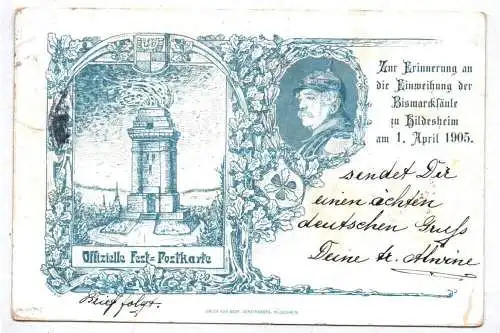 Zur Erinnerung an
die Einweihung der
Bismarcksäule
zu Hildesheim
am 1. April 1905.
sendet Dir
einen ächten
deutschen Gruss
Deine tr. Alwine
Offizielle Fest=Postkarte
Brief folgt.